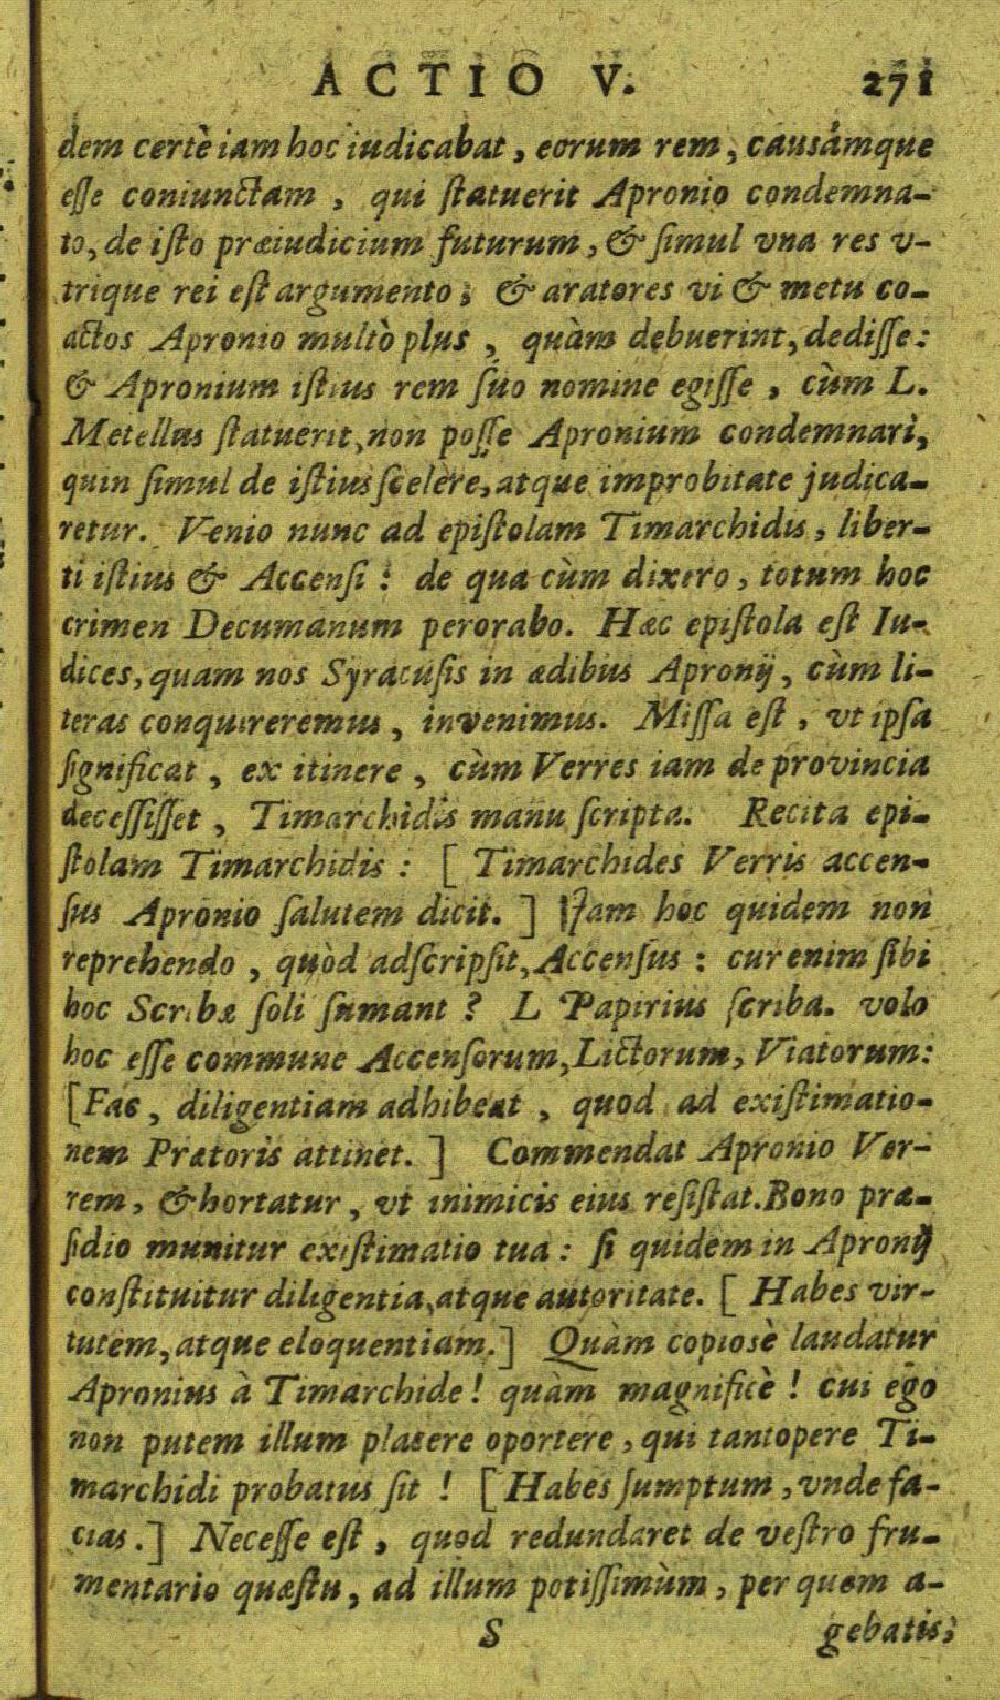 ACTIO V. 271
dem certè iam hoc iudicabat, eorum rem, causámque
esse coniunctam, qui statuerit Apronio condemna-
to, de isto præiudicium futurum, & simul vna res v-
trique rei est argumento; & aratores vi & metu co-
actos Apronio multò plus, quàm debuerint, dedisse:
& Apronium istius rem suo nomine egisse, cùm L.
Metellus statuerit, non posse Apronium condemnari,
quin simul de istius scelere, atque improbitate judica-
retur. Venio nunc ad epistolam Timarchidis, liber-
ti istius & Accensi: de qua cùm dixero, totum hoc
crimen Decumanum perorabo. Hæc epistola est Iu-
dices, quam nos Syracusis in ædibus Apronij, cùm li-
teras conquireremus, invenimus. Missa est, vt ipsa
significat, ex itinere, cùm Verres iam de provincia
decessisset, Timarchidis manu scripta. Recita epi-
stolam Timarchidis: [ Timarchides Verris accen-
sus Apronio salutem dicit. ] Jam hoc quidem non
reprehendo, quòd adscripsit, Accensus: cur enim sibi
hoc Scribæ soli sumant? L Papirius scriba. volo
hoc esse commune Accensorum, Lictorum, Viatorum:
[Fac, diligentiam adhibeat, quod ad existimatio-
nem Prætoris attinet. ] Commendat Apronio Ver-
rem, & hortatur, vt inimicis eius resistat. Bono præ-
sidio munitur existimatio tua: si quidem in Apronij
constituitur diligentia, atque autoritate. [ Habes vir-
tutem, atque eloquentiam.] Quàm copiosè laudatur
Apronius à Timarchide! quàm magnificè! cui ego
non putem illum placere oportere, qui tantopere Ti-
marchidi probatus sit! [ Habes sumptum, vnde fa-
cias.] Necesse est, quod redundaret de vestro fru-
mentario quæstu, ad illum potissimùm, per quem a-
S gebatis;